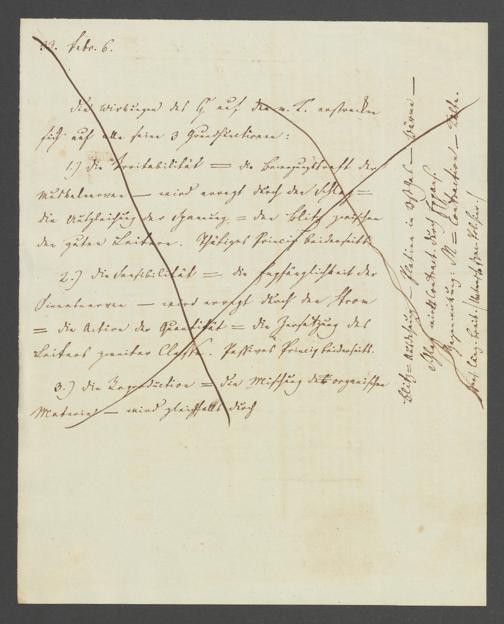 Febr. 6.
die Wirkungen des G auf den m. L. erstrecken
sich auf alle seine 3 Grundfunctionen:
1.) die Irritabilität = die Bewegungskraft der
Muskelnerven — wird erregt durch den Schlag =
die Ausgleichung der Spannung = der Blitz zwischen
den guten Leitern. Thätiges Princip beiderseits.
2.) die Sensibilität = die Empfänglichkeit der
Sinnesnerven — wird erregt durch den Strom
= die Action der Quantität = die Zersetzung des
Leiters zweiter Classe. Passives Princip beiderseits.
3.) die Reproduction = die Mischung der organischen
Materie — wird gleichfalls durch
Blitz = Ausdehnung — Platina in — Wärme —
Magnetismus: M = Contraction — Kälte.